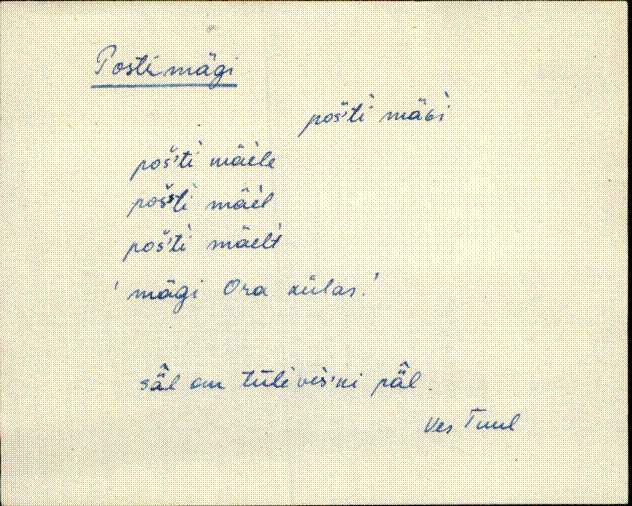 Postimägi
poš'ti mäGi
poš'ti mäele
poš'ti mäel
poš'ti mäelt
'mägi Ora külas.'
säl on tūlėveš'ki päl.
Ves Tuul